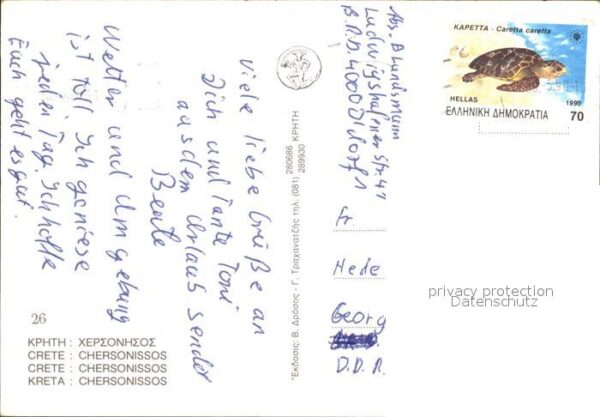 Viele liebe Grüße an
Dich und Tante Toni
aus dem Urlaub sendet
Beate
Wetter und Umgebung
ist toll Ich geniese
jeden Tag. Ich hoffe
Euch geht es gut.
26
ΚΡΗΤΗ : ΧΕΡΣΟΝΗΣΟΣ
CRETE : CHERSONISSOS
CRETE : CHERSONISSOS
KRETA : CHERSONISSOS
"Εκδοσις: Β. Δρόσος - Γ. Τραχανατζής τηλ. (081) 280686 289930 ΚΡΗΤΗ
Abs. B Lundsmann
Ludwigshafener Str. 41
B.R.D. 4000 Dldorf 1
ΚΑΡΕΤΤΑ - Caretta caretta
HELLAS 1990
ΕΛΛΗΝΙΚΗ ΔΗΜΟΚΡΑΤΙΑ 70
Fr.
Hede
Georg
D.D.R.
privacy protection
Datenschutz